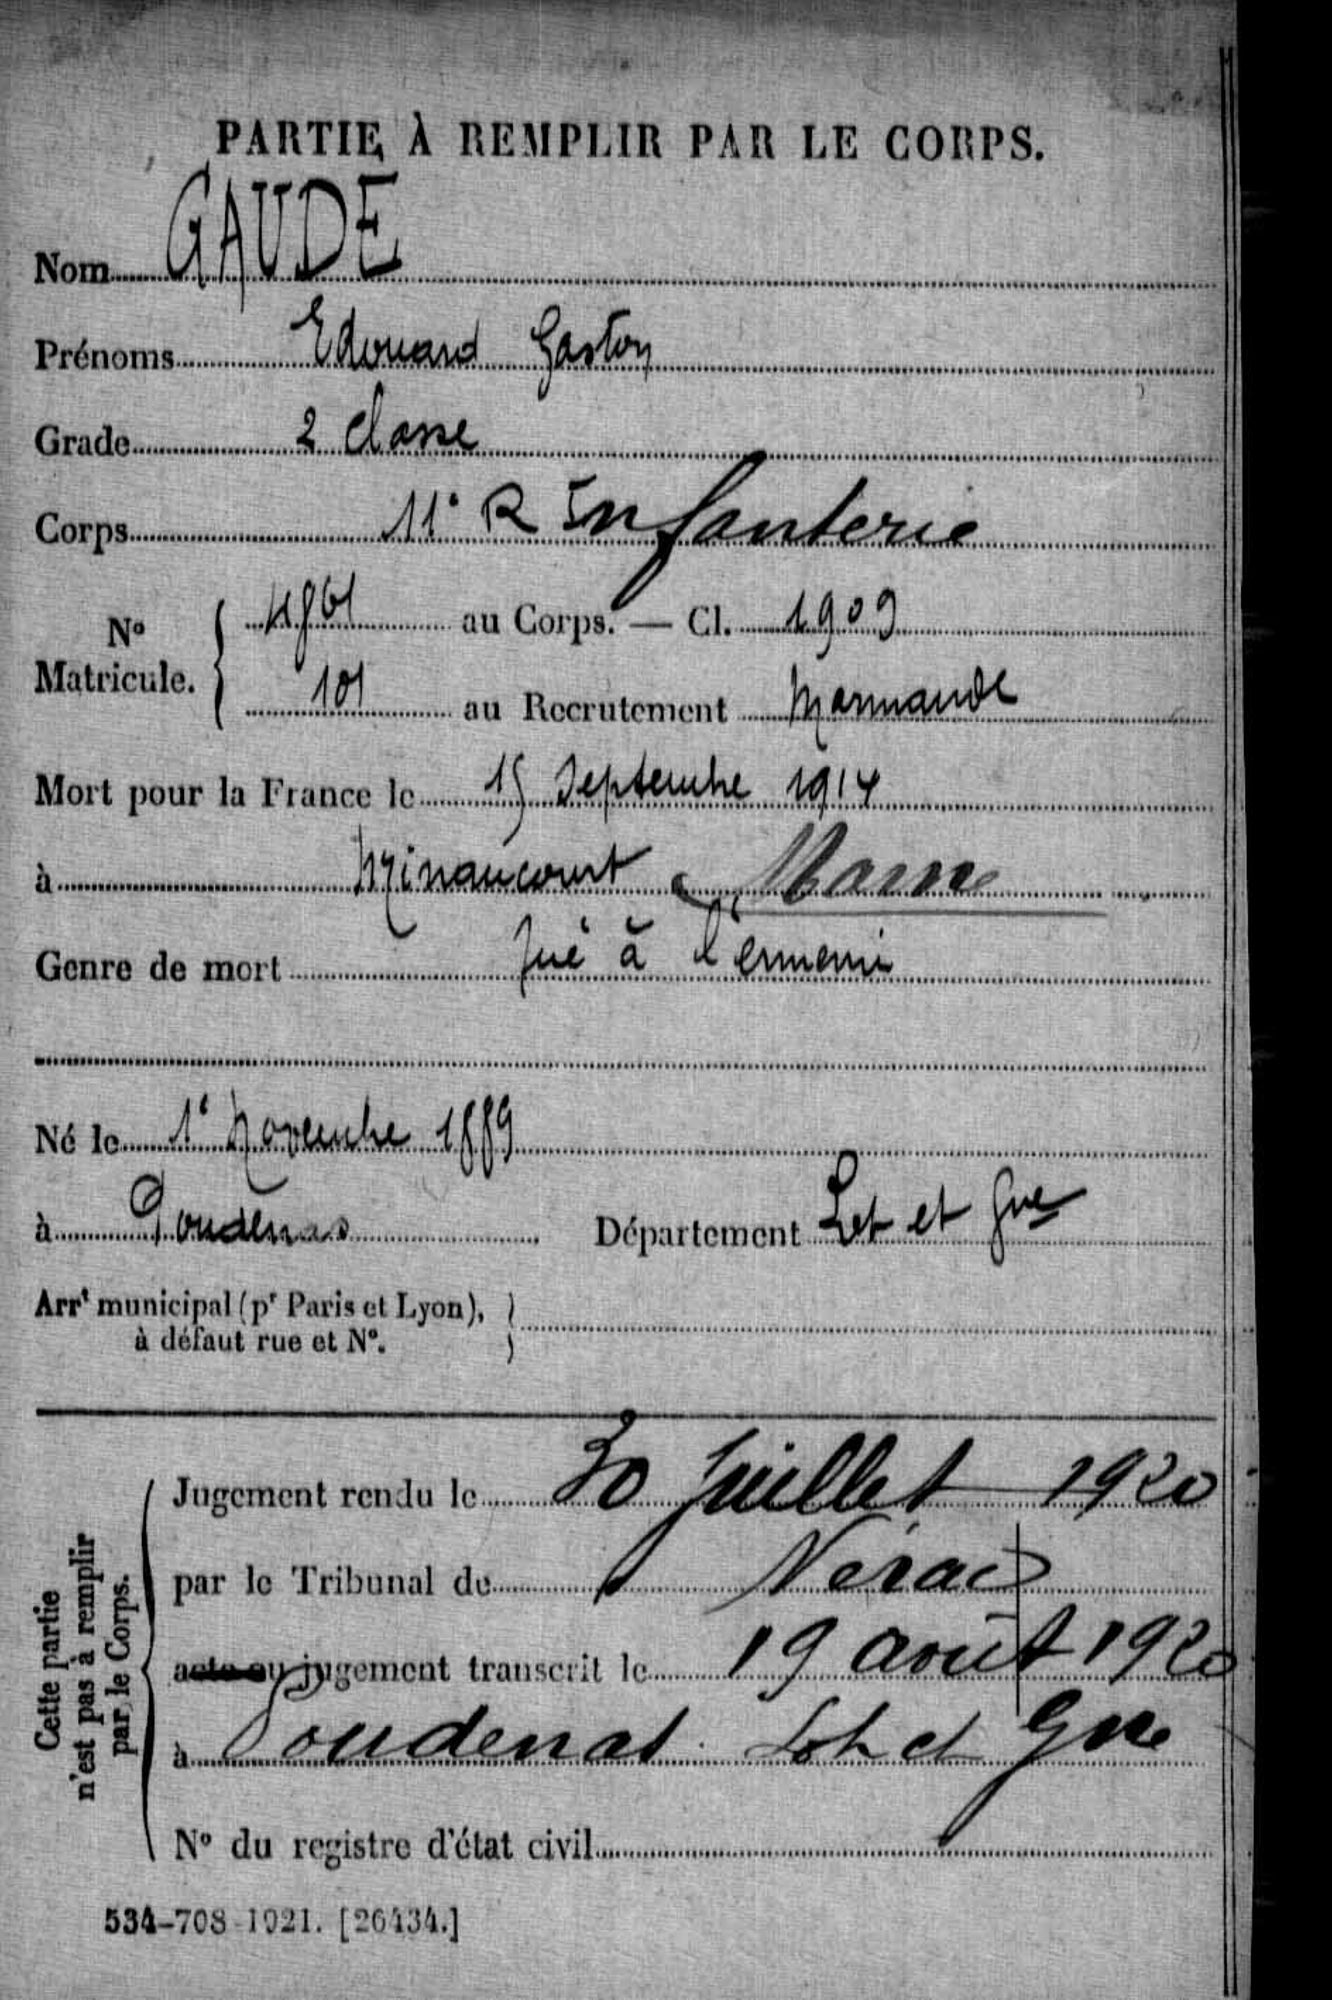 PARTIE À REMPLIR PAR LE CORPS.
Nom GAUDE
Prénoms Edouard Gaston
Grade 2 classe
Corps 11e R Infanterie
No Matricule. 4861 au Corps. — Cl. 1909
101 au Recrutement Marmande
Mort pour la France le 15 Septembre 1914
à Minaucourt Marne
Genre de mort Tué à l'ennemi
Né le 1e Novembre 1889
à Poudenas Département Lot et Gne
Arrt municipal (pr Paris et Lyon),
à défaut rue et N°.
Cette partie
n'est pas à remplir
par le Corps.
Jugement rendu le 30 Juillet 1920
par le Tribunal de Nérac
acte ou jugement transcrit le 19 août 1920
à Poudenas Lot et Gne
N° du registre d'état civil
534-708-1921. [26434.]